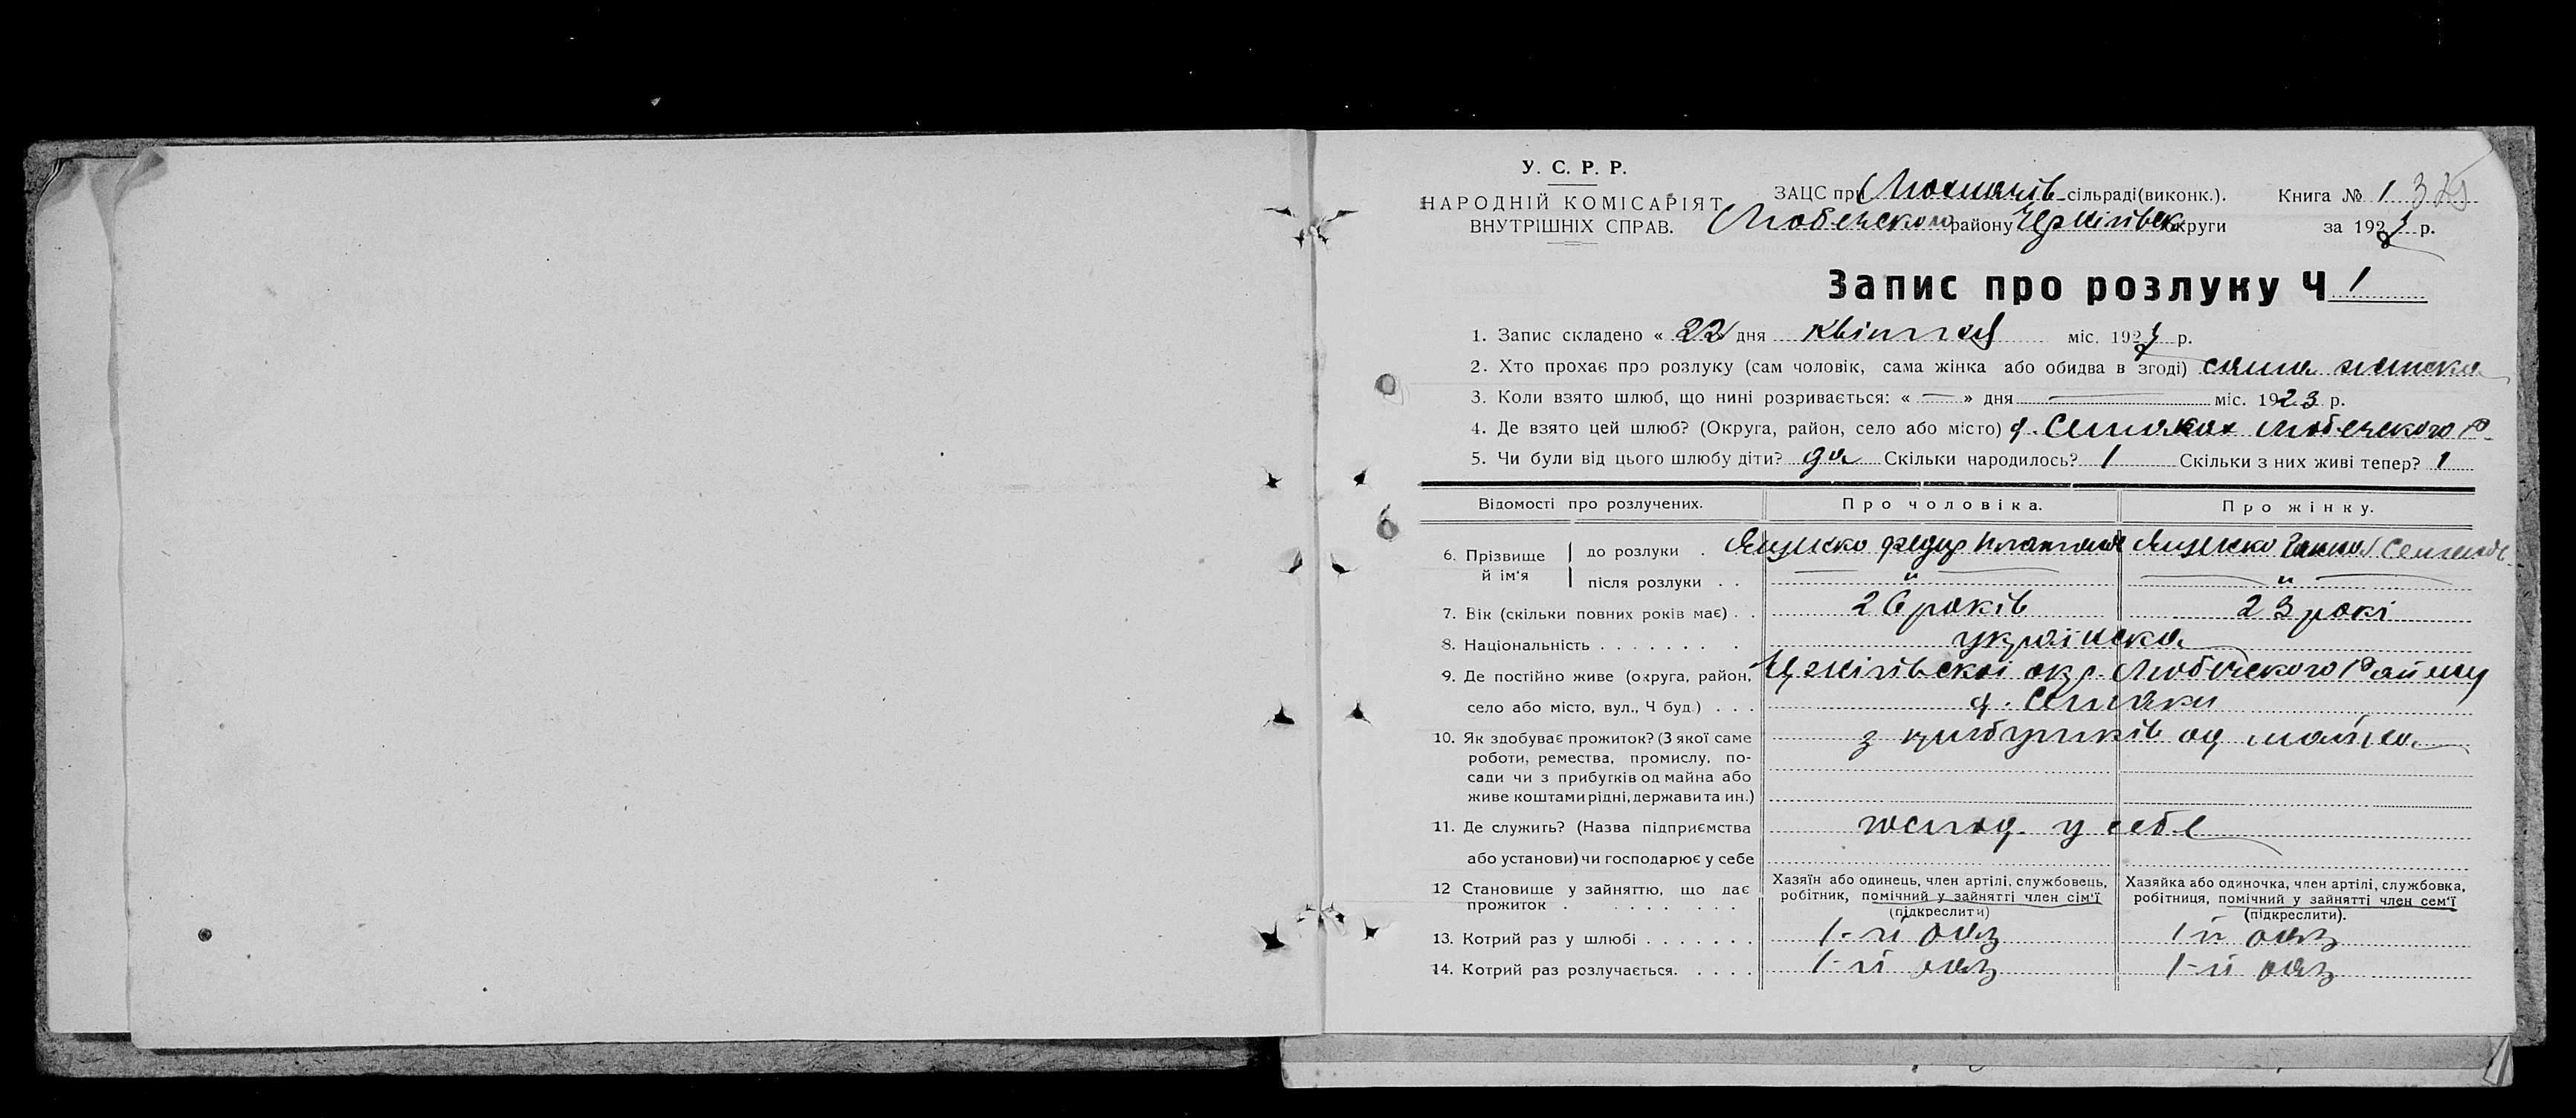 У. С. Р. Р.
НАРОДНІЙ КОМІСАРІЯТ
ВНУТРІШНІХ СПРАВ.
ЗАЦС при сільраді (виконк.).
Любечского району Чернігівск округи
Книга № 1
за 192 р.
Запис про розлуку Ч 1
1. Запис складено « 22 дня квітня міс. 192 р.
2. Хто прохає про розлуку (сам чоловік, сама жінка або обидва в згоді) сама жінка
3. Коли взято шлюб, що нині розривається: « — » дня — міс. 1923 р.
4. Де взято цей шлюб? (Округа, район, село або місто) Любечского Р
5. Чи були від цього шлюбу діти? да Скільки народилось? 1 Скільки з них живі тепер? 1
Відомості про розлучених. Про чоловіка. Про жінку.
6. Прізвище й ім'я до розлуки . Ященко Федір Ященко Ганна
після розлуки . . — " — — " —
7. Вік (скільки повних років має) . . 26 років 23 рокі
8. Національність . . . . . . . . українска
9. Де постійно живе (округа, район, Чернігівскоі окр. Любечского Району
село або місто, вул., Ч буд.) . . .
10. Як здобуває прожиток? (З якої саме з прибутків од майна
роботи, ремества, промислу, по-
сади чи з прибутків од майна або
живе коштами рідні, держави та ин.)
11. Де служить? (Назва підприємства господ. у себе
або установи) чи господарює у себе
12 Становище у зайняттю, що дає прожиток . . . . . . . .
Хазяїн або одинець, член артілі, службовець,
робітник, помічний у зайнятті член сім'ї
(підкреслити)
Хазяйка або одиночка, член артілі, службовка,
робітниця, помічний у зайнятті член сем'ї
(підкреслити).
13. Котрий раз у шлюбі . . . . . . . 1-й раз 1й раз
14. Котрий раз розлучається. . . . . 1-й раз 1-й раз